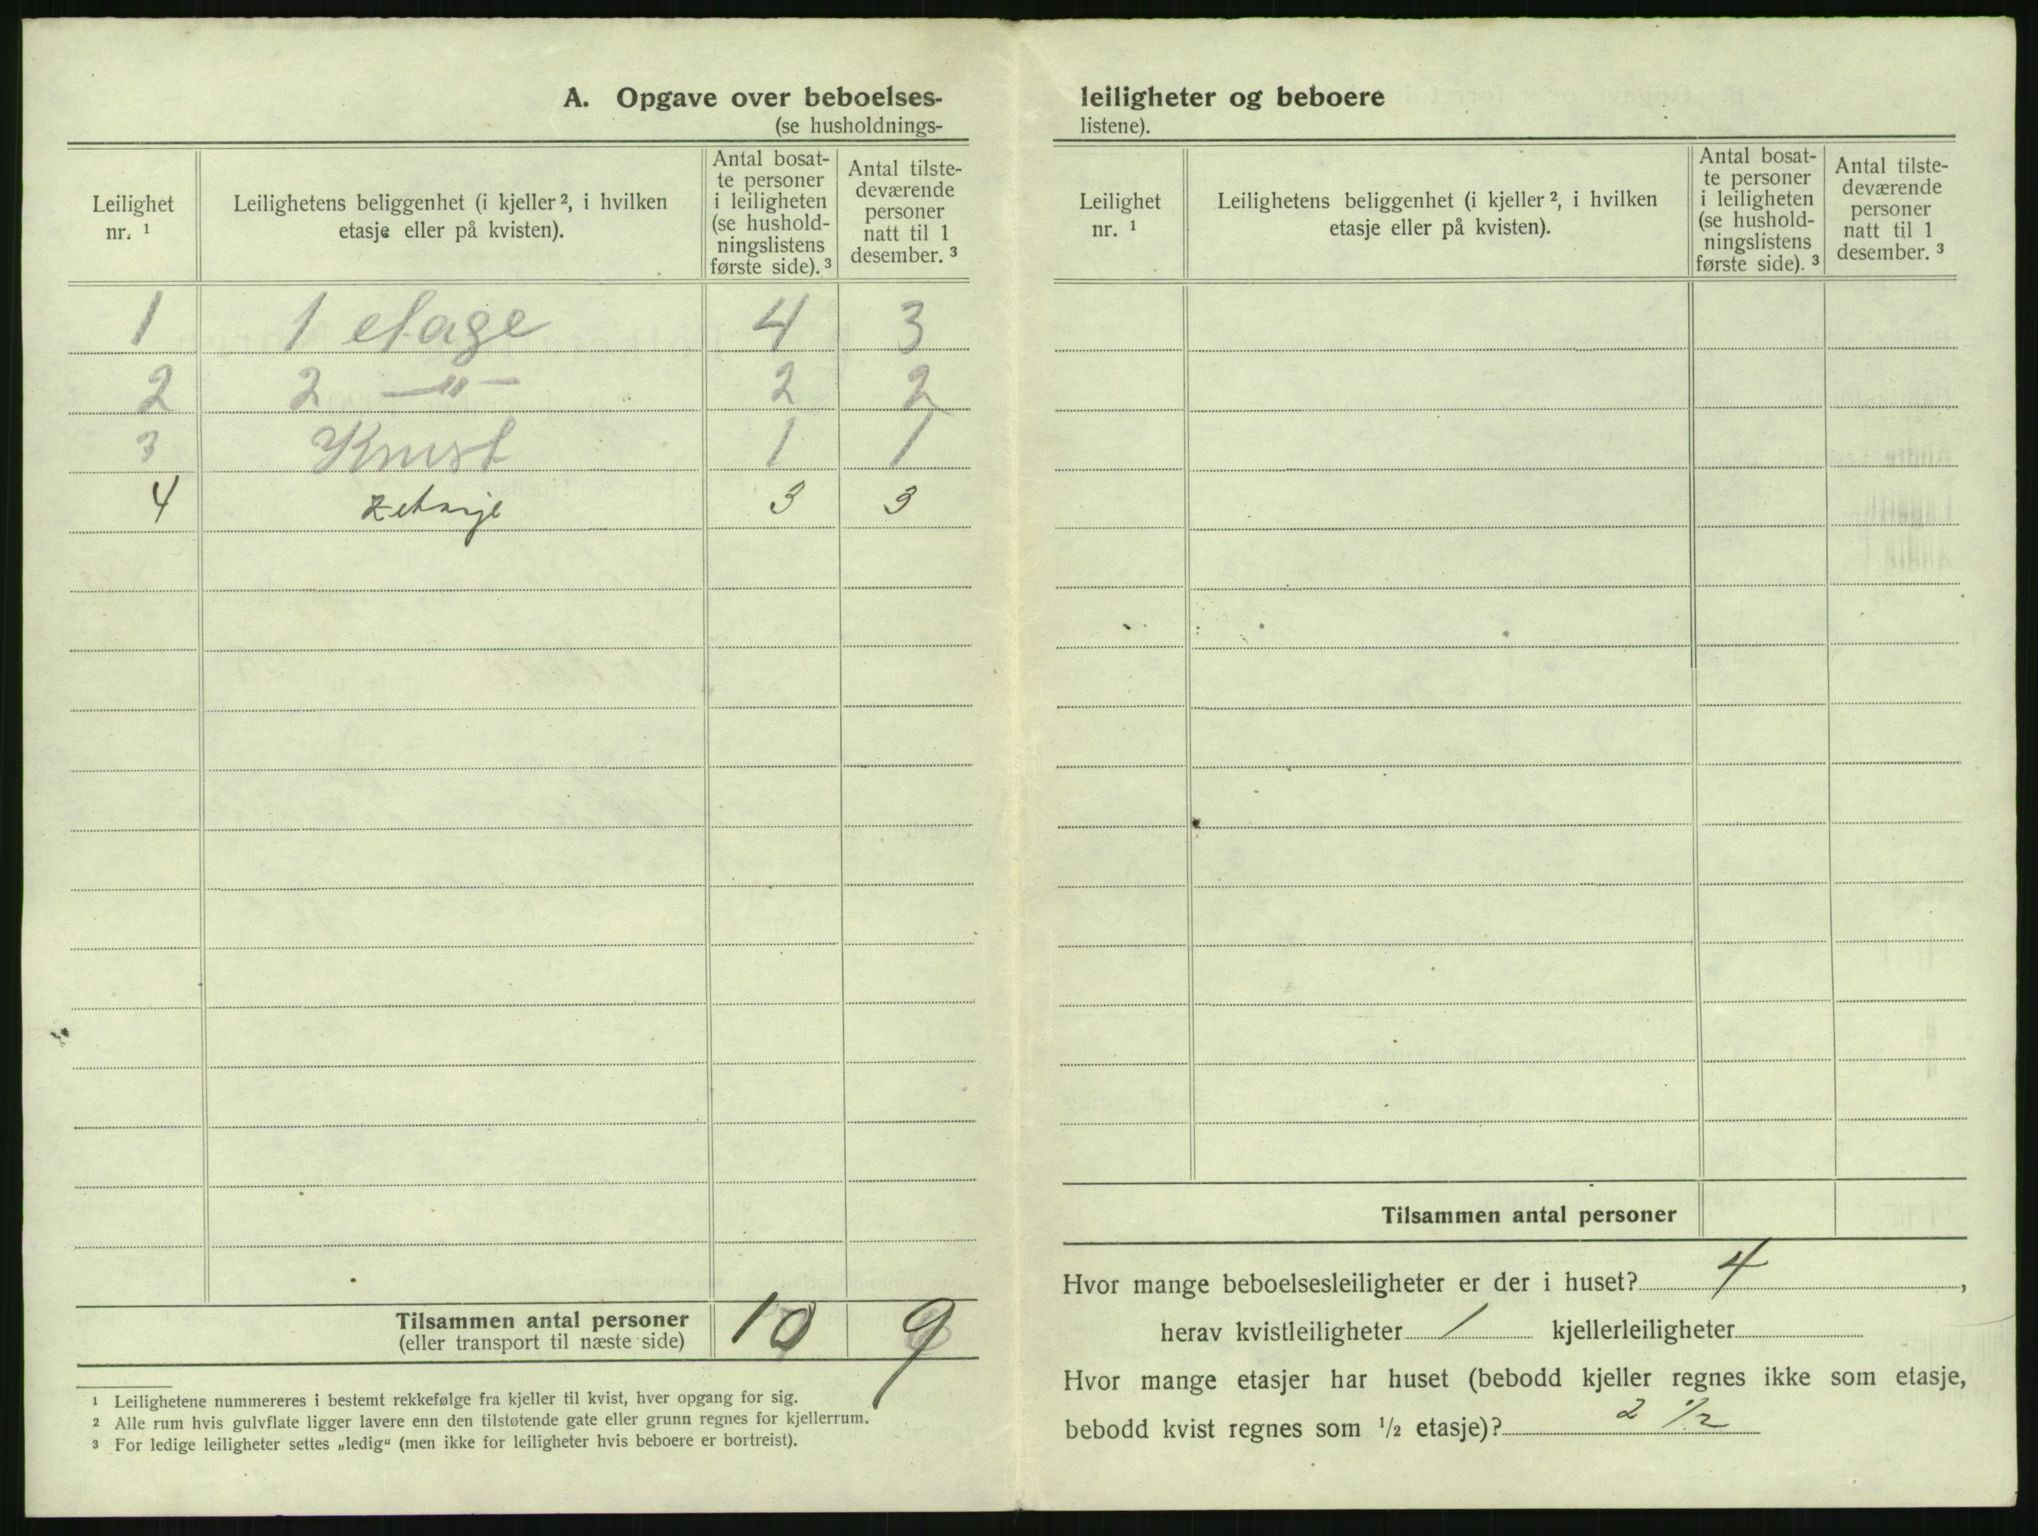 A. Opgave over beboelses-
(se husholdnings-
Leilighet
nr. ¹
Leilighetens beliggenhet (i kjeller ², i hvilken
etasje eller på kvisten).
Antal bosat-
te personer
i leiligheten
(se hushold-
ningslistens
første side). ³
Antal tilste-
deværende
personer
natt til 1
desember. ³
1 1 etage 4 3
2 2 —"— 2 2
3 Kvist 1 1
4 2 etasje 3 3
Tilsammen antal personer 10 9
(eller transport til næste side)
¹ Leilighetene nummereres i bestemt rekkefølge fra kjeller til kvist, hver opgang for sig.
² Alle rum hvis gulvflate ligger lavere enn den tilstøtende gate eller grunn regnes for kjellerrum.
³ For ledige leiligheter settes „ledig“ (men ikke for leiligheter hvis beboere er bortreist).
leiligheter og beboere
listene).
Leilighet
nr. ¹
Leilighetens beliggenhet (i kjeller ², i hvilken
etasje eller på kvisten).
Antal bosat-
te personer
i leiligheten
(se hushold-
ningslistens
første side). ³
Antal tilste-
deværende
personer
natt til 1
desember. ³
Tilsammen antal personer
Hvor mange beboelsesleiligheter er der i huset? 4,
herav kvistleiligheter 1 kjellerleiligheter
Hvor mange etasjer har huset (bebodd kjeller regnes ikke som etasje,
bebodd kvist regnes som ½ etasje)? 2 ½